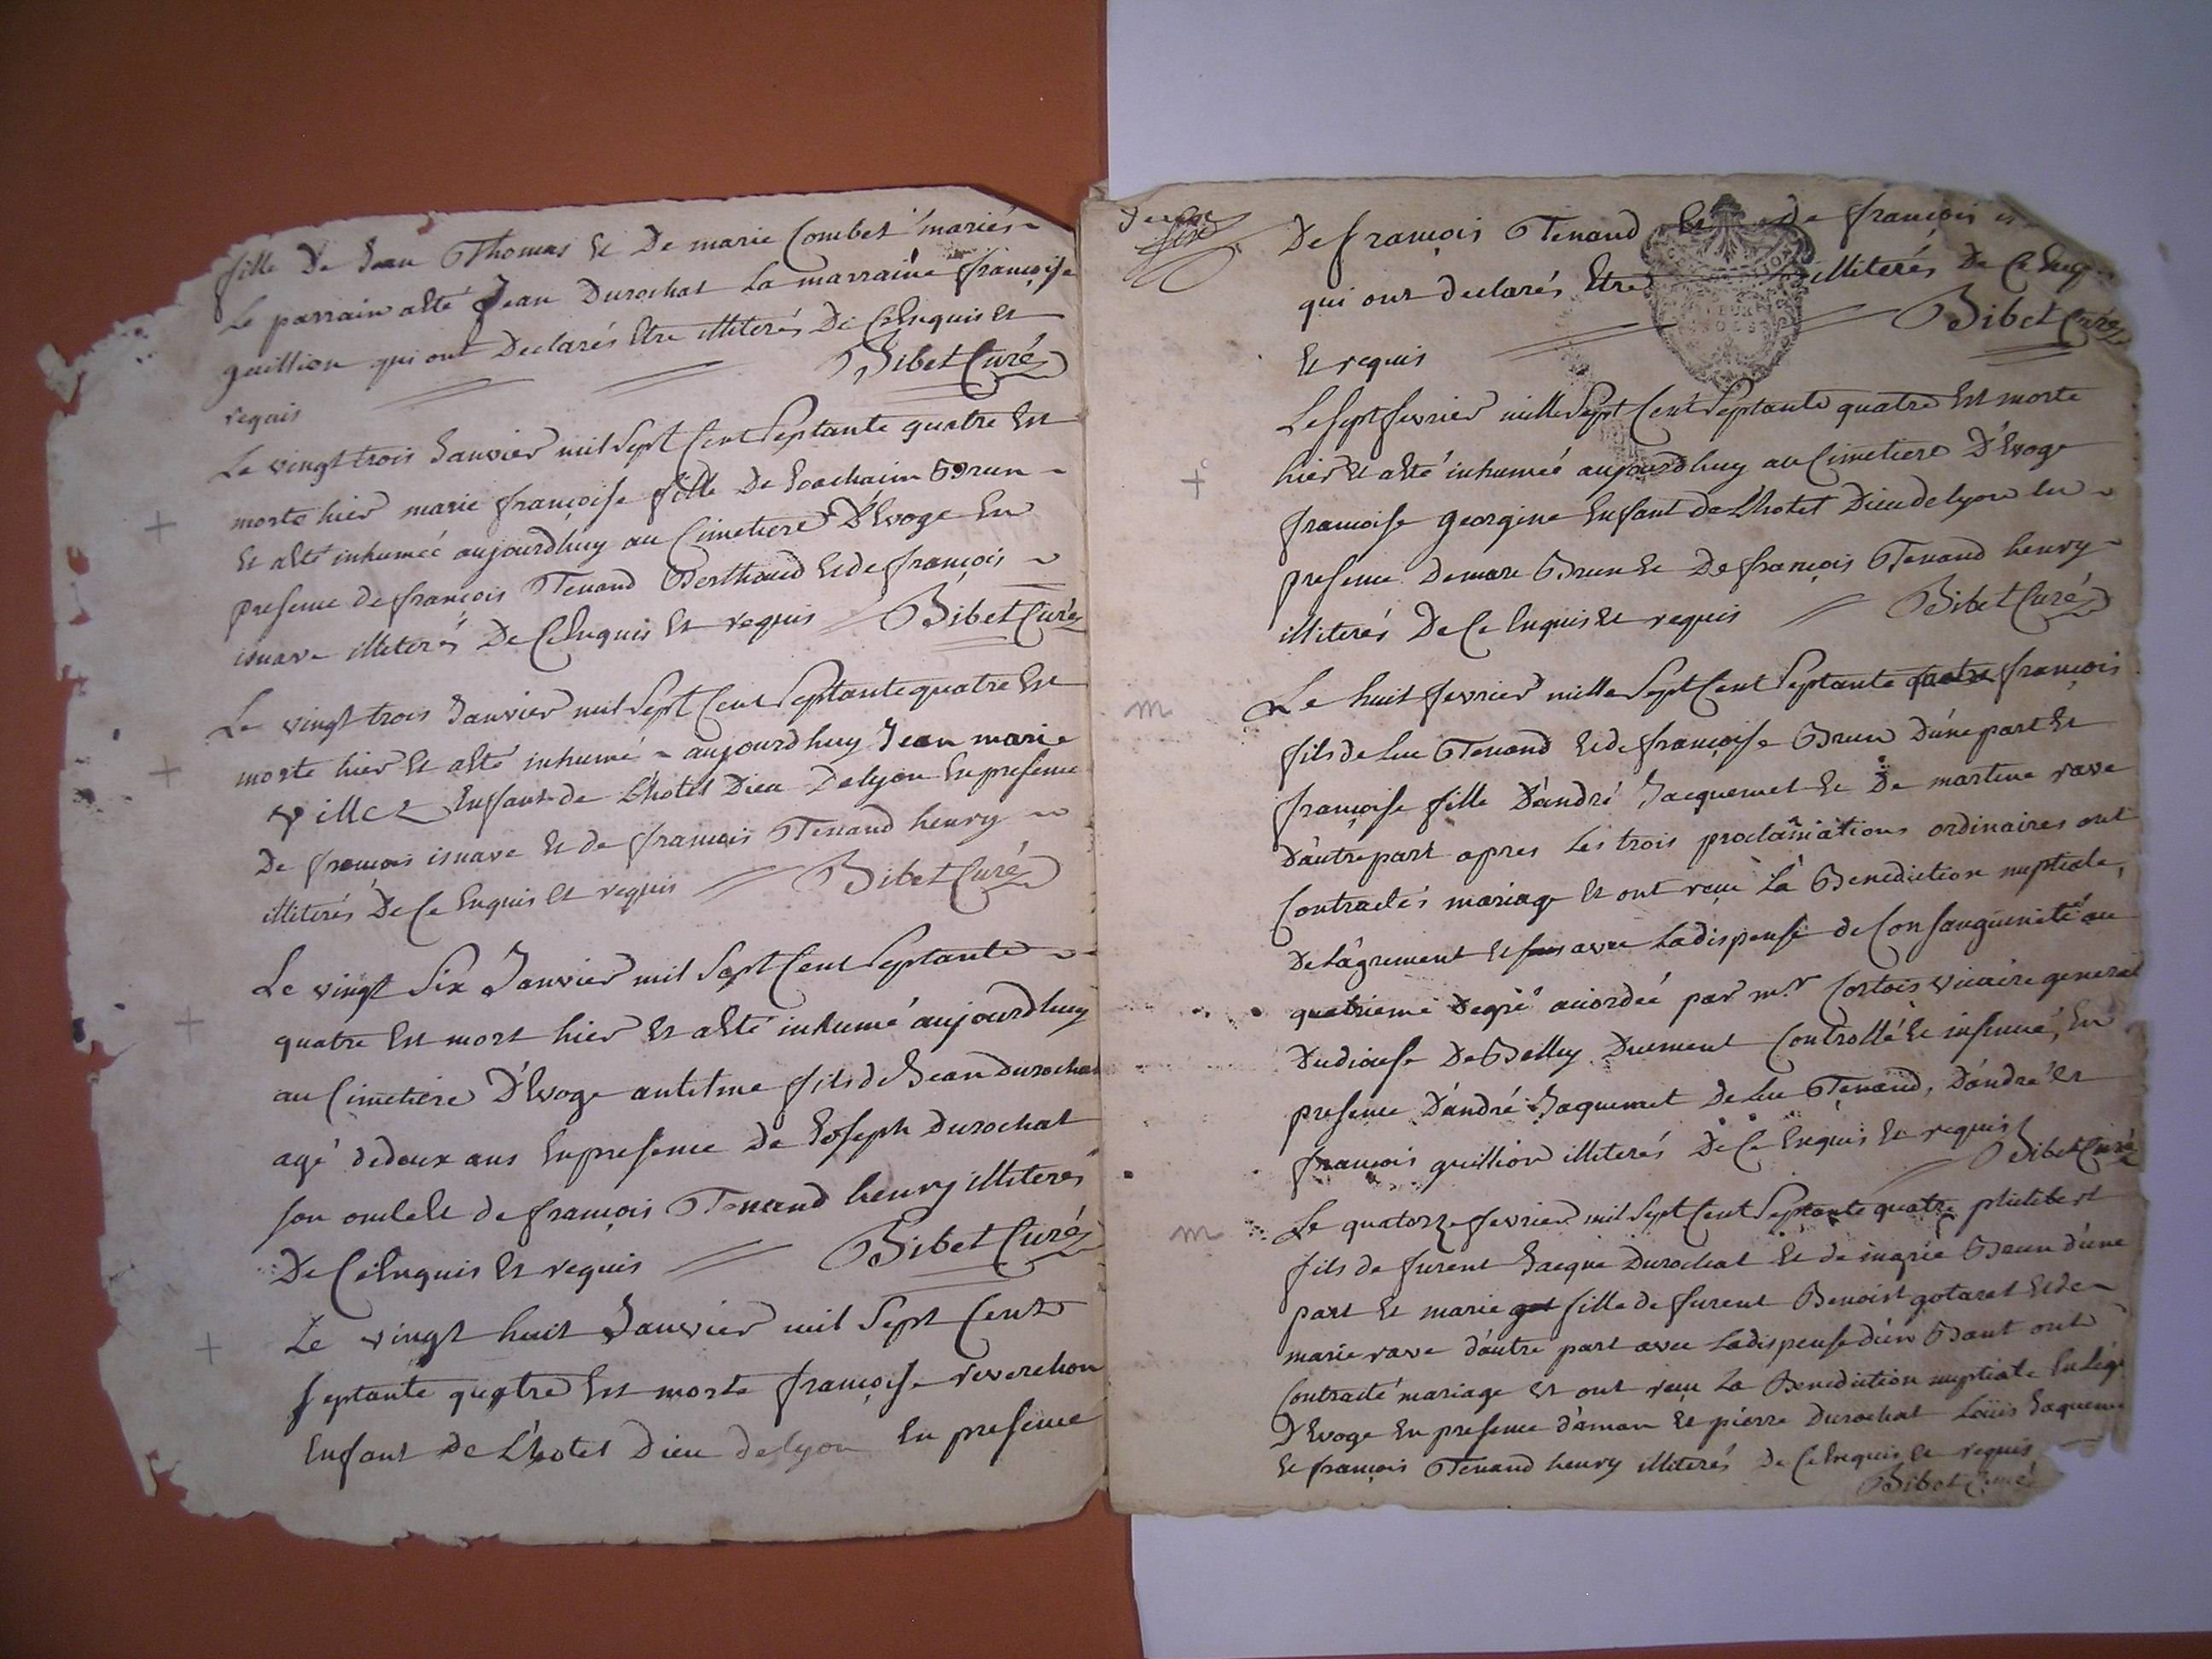 fille De Jean Thomas Et De marie Combet mariés
Le parrain aété Jean Durochat La marraine françoise
guillion qui ont Declarés Etre illiterés De Ce Enquis et
requis
Bibet Curé
Le vingt trois Janvier mil Sept Cent Septante quatre Est
morte hier marie françoise fille De Joachaim Brun
Et aété inhumeé aujourdhuy au Cimetiere D'Evoge En
presence de françois Tenand Berthaud Et de françois
isnave illiterés De Ce Enquis Et requis Bibet Curé
Le vingt trois Janvier mil Sept Cent Septante quatre Est
morte hier Et aété inhumé aujourdhuy Jean marie
villet Enfant de L'hotel Dieu De lyon En presence
De françois isnave Et de françois Tenand henry
illiterés De Ce Enquis et requis Bibet Curé
Le vingt Six Janvier mil Sept Cent Septante
quatre Est mort hier Et aété inhumé aujourdhuy
au Cimetiere D'Evoge antelme fils de Jean Durochat
agé de deux ans En presence De Joseph Durochat
son oncle Et de françois Tenand henry illiterés
De Ce Enquis Et requis Bibet Curé
Le vingt huit Janvier mil Sept Cent
septante quatre Est morte françoise reverchon
Enfant de L'hotel Dieu de lyon En presence
De françois Tenand Et de françois
qui ont declarés Etre illiterés De Ce
Et requis
Bibet Curé
Le sept fevrier mille Sept Cent Septante quatre Est morte
hier Et aété inhumeé aujourdhuy au Cimetiere D'Evoge
françoise georgine Enfant de L'hotel Dieu de lyon En
presence De marc Brun Et De françois Tenand henry
illiterés De Ce Enquis Et requis Bibet Curé
m
Le huit fevrier mille Sept Cent Septante quatre françois
fils de Luc Tenand Et de françoise Brun D'une part Et
françoise fille D'andré Jacquemet Et De martine rave
D'autre part apres Les trois proclamations ordinaires ont
Contractés mariage Et ont reçu La Benediction nuptiale,
De L'agrement Et avec La dispense de Consanguinité au
quatrieme Degré accordée par mr Cortois vicaire general
Du diocese De Belley Duement Controllé Et insinué, En
presence D'andré Jaquemet De Luc Tenand, D'andré Et
françois guillion illiterés De Ce Enquis Et requis
Bibet Curé
m
Le quatorze fevrier mil Sept Cent Septante quatre philibert
fils de furent Jacque Durochat Et de marie Brun d'une
part Et marie fille de furent Benoist gotaret Et de
marie rave d'autre part avec La dispense d'un Bant ont
Contracté mariage Et ont reçu La Benediction nuptiale
D'Evoge En presence d'aman Et pierre Durochat Loüis
Et françois Tenand henry illiterés De Ce Enquis Et requis
Bibet Curé